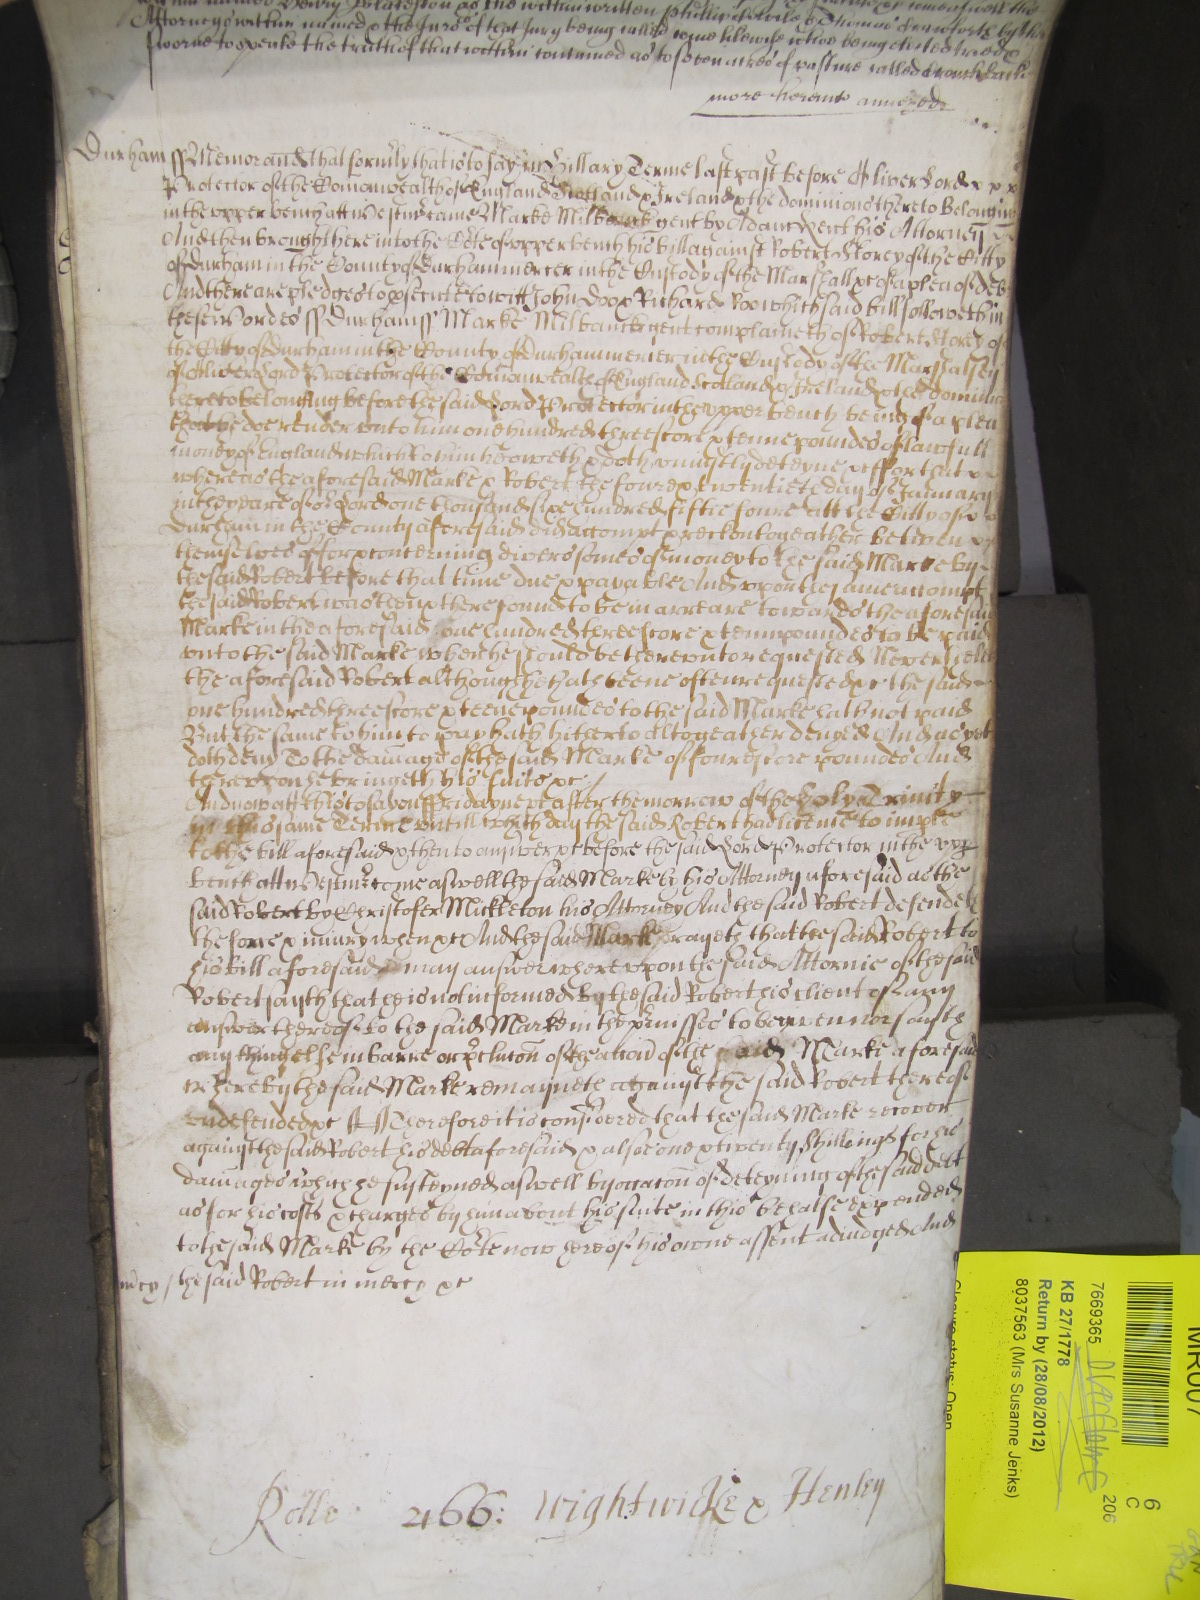 Attorneys within named & the Jurors of that Jury being called come likewise who being elected tried &
sworne to speake the truth of that within contained as to seven acres of pasture called
more hereunto annexed
Durham ss Memorand that formerly that is to say in Hillary Terme last past before Oliver Lord
Protector of the Comonwealth of England Scotland & Ireland & the dominions thereto belonging
in the upper bench att Westmr came Marke Milbanck gent by Adam his Attorney
And then brought here into the Cote of upper bench his bill against Robert Storey of the Citty
of Durham in the County of Durham mercer in the Custody of the Marshall &c of a plea of debt
And there are pledges to psecute to witt John Doo & Richard Roo which said bill followeth in
these wordes ss Durham ss Marke Milbanck gent complaineth of Robert Storey of
the Citty of Durham in the County of Durham mercer in the Custody of the Marshalsey
of Oliver Lord Protector of the Comonwealth of England Scotland & Ireland & the dominions
thereto belonging before the said Lord Protector in the upper bench being of a plea
that he doe render unto him one hundred threescore & tenne poundes of lawfull
money of England which to him he oweth & doth uniustly deteyne &c ffor that
whereas the aforesaid Marke & Robert the foure & twentieth day of January
in the yeare of or Lord one thousand sixe hundred fiftie foure att the Citty of
Durham in the County aforesaid did accompt & reckon togeather betwen
themselves of for & concerning divers somes of money to the said Marke by
the said Robert before that time due & payable And upon the same accompt
the said Robert was then & there found to be in arreare towards the aforesaid
Marke in the aforesaid one hundred threescore & tenn poundes to be paid
unto the said Marke when he should be thereunto requested Neverthelesse
the aforesaid Robert although he hath beene often requested &c the said
one hundred threescore & teene poundes to the said Marke hath not paid
But the same to him to pay hath hitherto altogeather denyed And as yet
doth deny To the damage of the said Marke of fourescore poundes And
thereupon he bringeth his suite &c
And now att this to say on ffriday next after the morrow of the holy Trinity
in this same Terme untill which day the said Robert had licence to imple
to the bill aforesaid & then to answer &c before the said Lord Protector in the upp
bench att Westmr come aswell the said Marke by his Attorney aforesaid as the
said Robert by Christofer Mickleton his Attorney And the said Robert defendeth
the force & iniury when &c And the said Marke prayeth that the said Robert to
his bill aforesaid may answer whereupon the said Attornie of the said
Robert sayth that he is not informed by the said Robert his client of any
answer thereof to the said Marke in the pmisses to be given nor saith
any thing else in barre or pclucon of the accion of the said Marke aforesaid
whereby the said Marke remayneth against the said Robert thereof
undefended &c Therefore it is considered that the said Marke recover
against the said Robert his debt aforesaid & alsoe one & twenty shillings for his
damages which he susteyned aswell by occacon of deteyning of the said debt
as for his costs & charges by him about his suite in this behalfe expended
to the said Marke by the Cote now here of his owne assent adiudged And
mcy the said Robert in mercy &c
Rolle 466: Wightwicke & Henley
MR007
6
C
206
7669365
KB 27/1778
Return by (28/08/2012)
8037563 (Mrs Susanne Jenks)
Closure status: Open